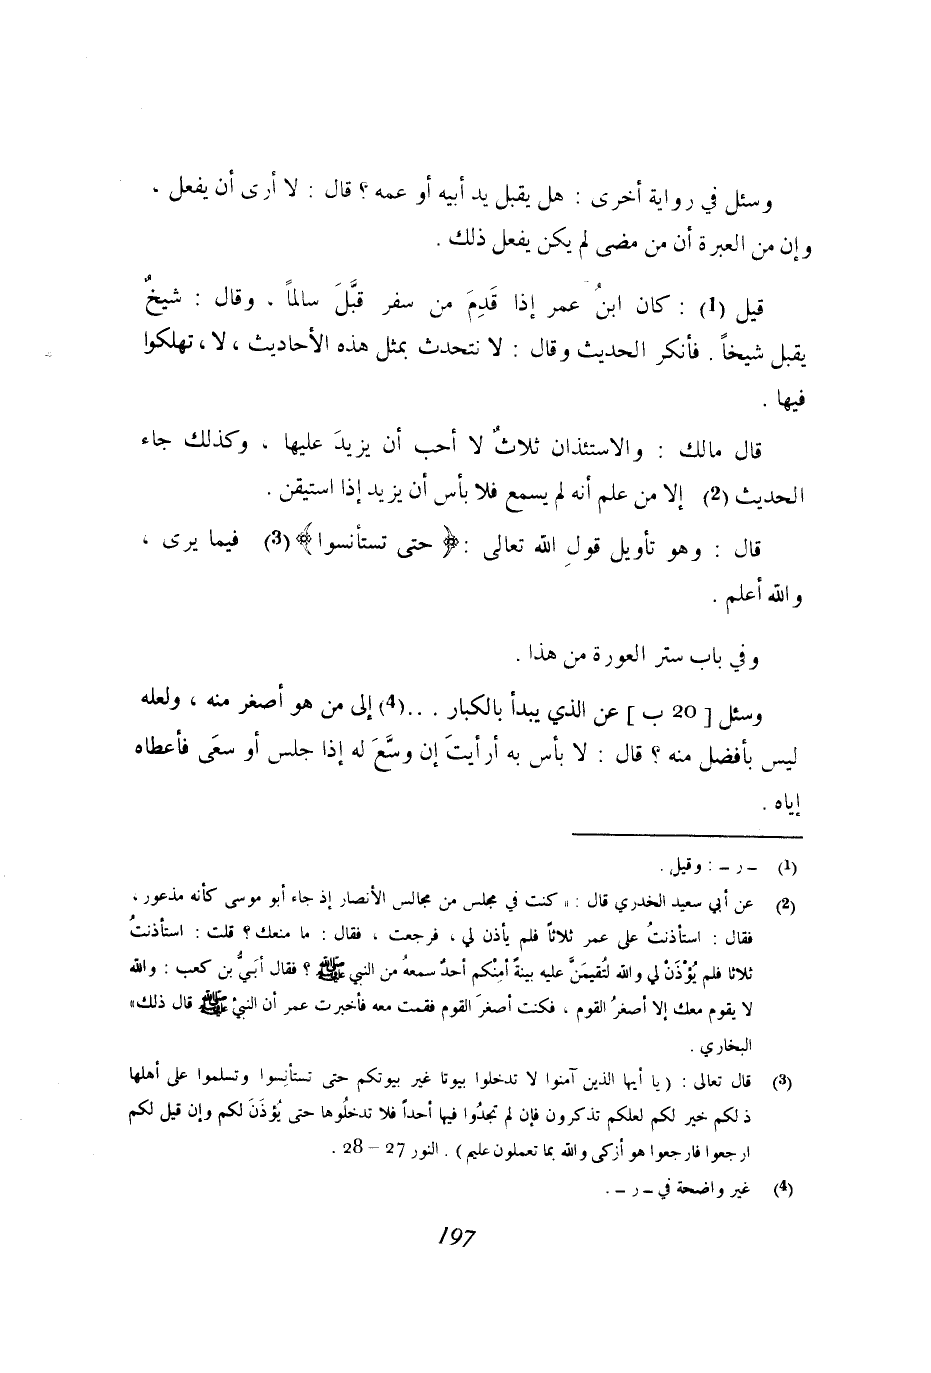 وسئل في رواية أخرى : هل يقبل يد أبيه أو عمه ؟ قال : لا أرى أن يفعل ،
وإن من العبرة أن من مضى لم يكن يفعل ذلك .
قيل (1) : كان ابنُ عمر إذا قَدِمَ من سفر قبَّلَ سالماً . وقال : شيخٌ
يقبل شيخاً . فأنكر الحديث وقال : لا نتحدث بمثل هذه الأحاديث ، لا ، تهلكوا
فيها .
قال مالك : والاستئذان ثلاثٌ لا أحب أن يزيدَ عليها ، وكذلك جاء
الحديث (2) إلا من علم أنه لم يسمع فلا بأس أن يزيد إذا استيقن .
قال : وهو تأويل قولِ الله تعالى : ﴿ حتى تستأنسوا ﴾ (3) فيما يرى ،
والله أعلم .
وفي باب ستر العورة من هذا .
وسئل [ 20 ب ] عن الذي يبدأ بالكبار . . . (4) إلى من هو أصغر منه ، ولعله
ليس بأفضل منه ؟ قال : لا بأس به أرأيتَ إن وسَّعَ له إذا جلس أو سعَى فأعطاه
إياه .
(1) – ر – : وقيل .
(2) عن أبي سعيد الخدري قال : « كنت في مجلس من مجالس الأنصار إذ جاء أبو موسى كأنه مذعور ،
فقال : استأذنتُ على عمر ثلاثاً فلم يأذن لي ، فرجعت ، فقال : ما منعك ؟ قلت : استأذنتُ
ثلاثا فلم يُؤْذَنْ لي والله لتُقيمَنَّ عليه بينةً أمِنْكم أحدٌ سمعهُ من النبي ﷺ ؟ فقال أبَيُّ بن كعب : والله
لا يقوم معك إلا أصغرُ القوم ، فكنت أصغرَ القوم فقمت معه فأخبرت عمر أن النبيَّ ﷺ قال ذلك »
البخاري .
(3) قال تعالى : ( يا أيها الذين آمنوا لا تدخلوا بيوتا غير بيوتكم حتى تستأنِسوا وتسلموا على أهلها
ذلكم خير لكم لعلكم تذكرون فإن لم تجدُوا فيها أحداً فلا تدخلُوها حتى يُؤذَنَ لكم وإن قيل لكم
ارجعوا فارجعوا هو أزكى والله بما تعملون عليم ) . النور 27 – 28 .
(4) غير واضحة في – ر – .
197